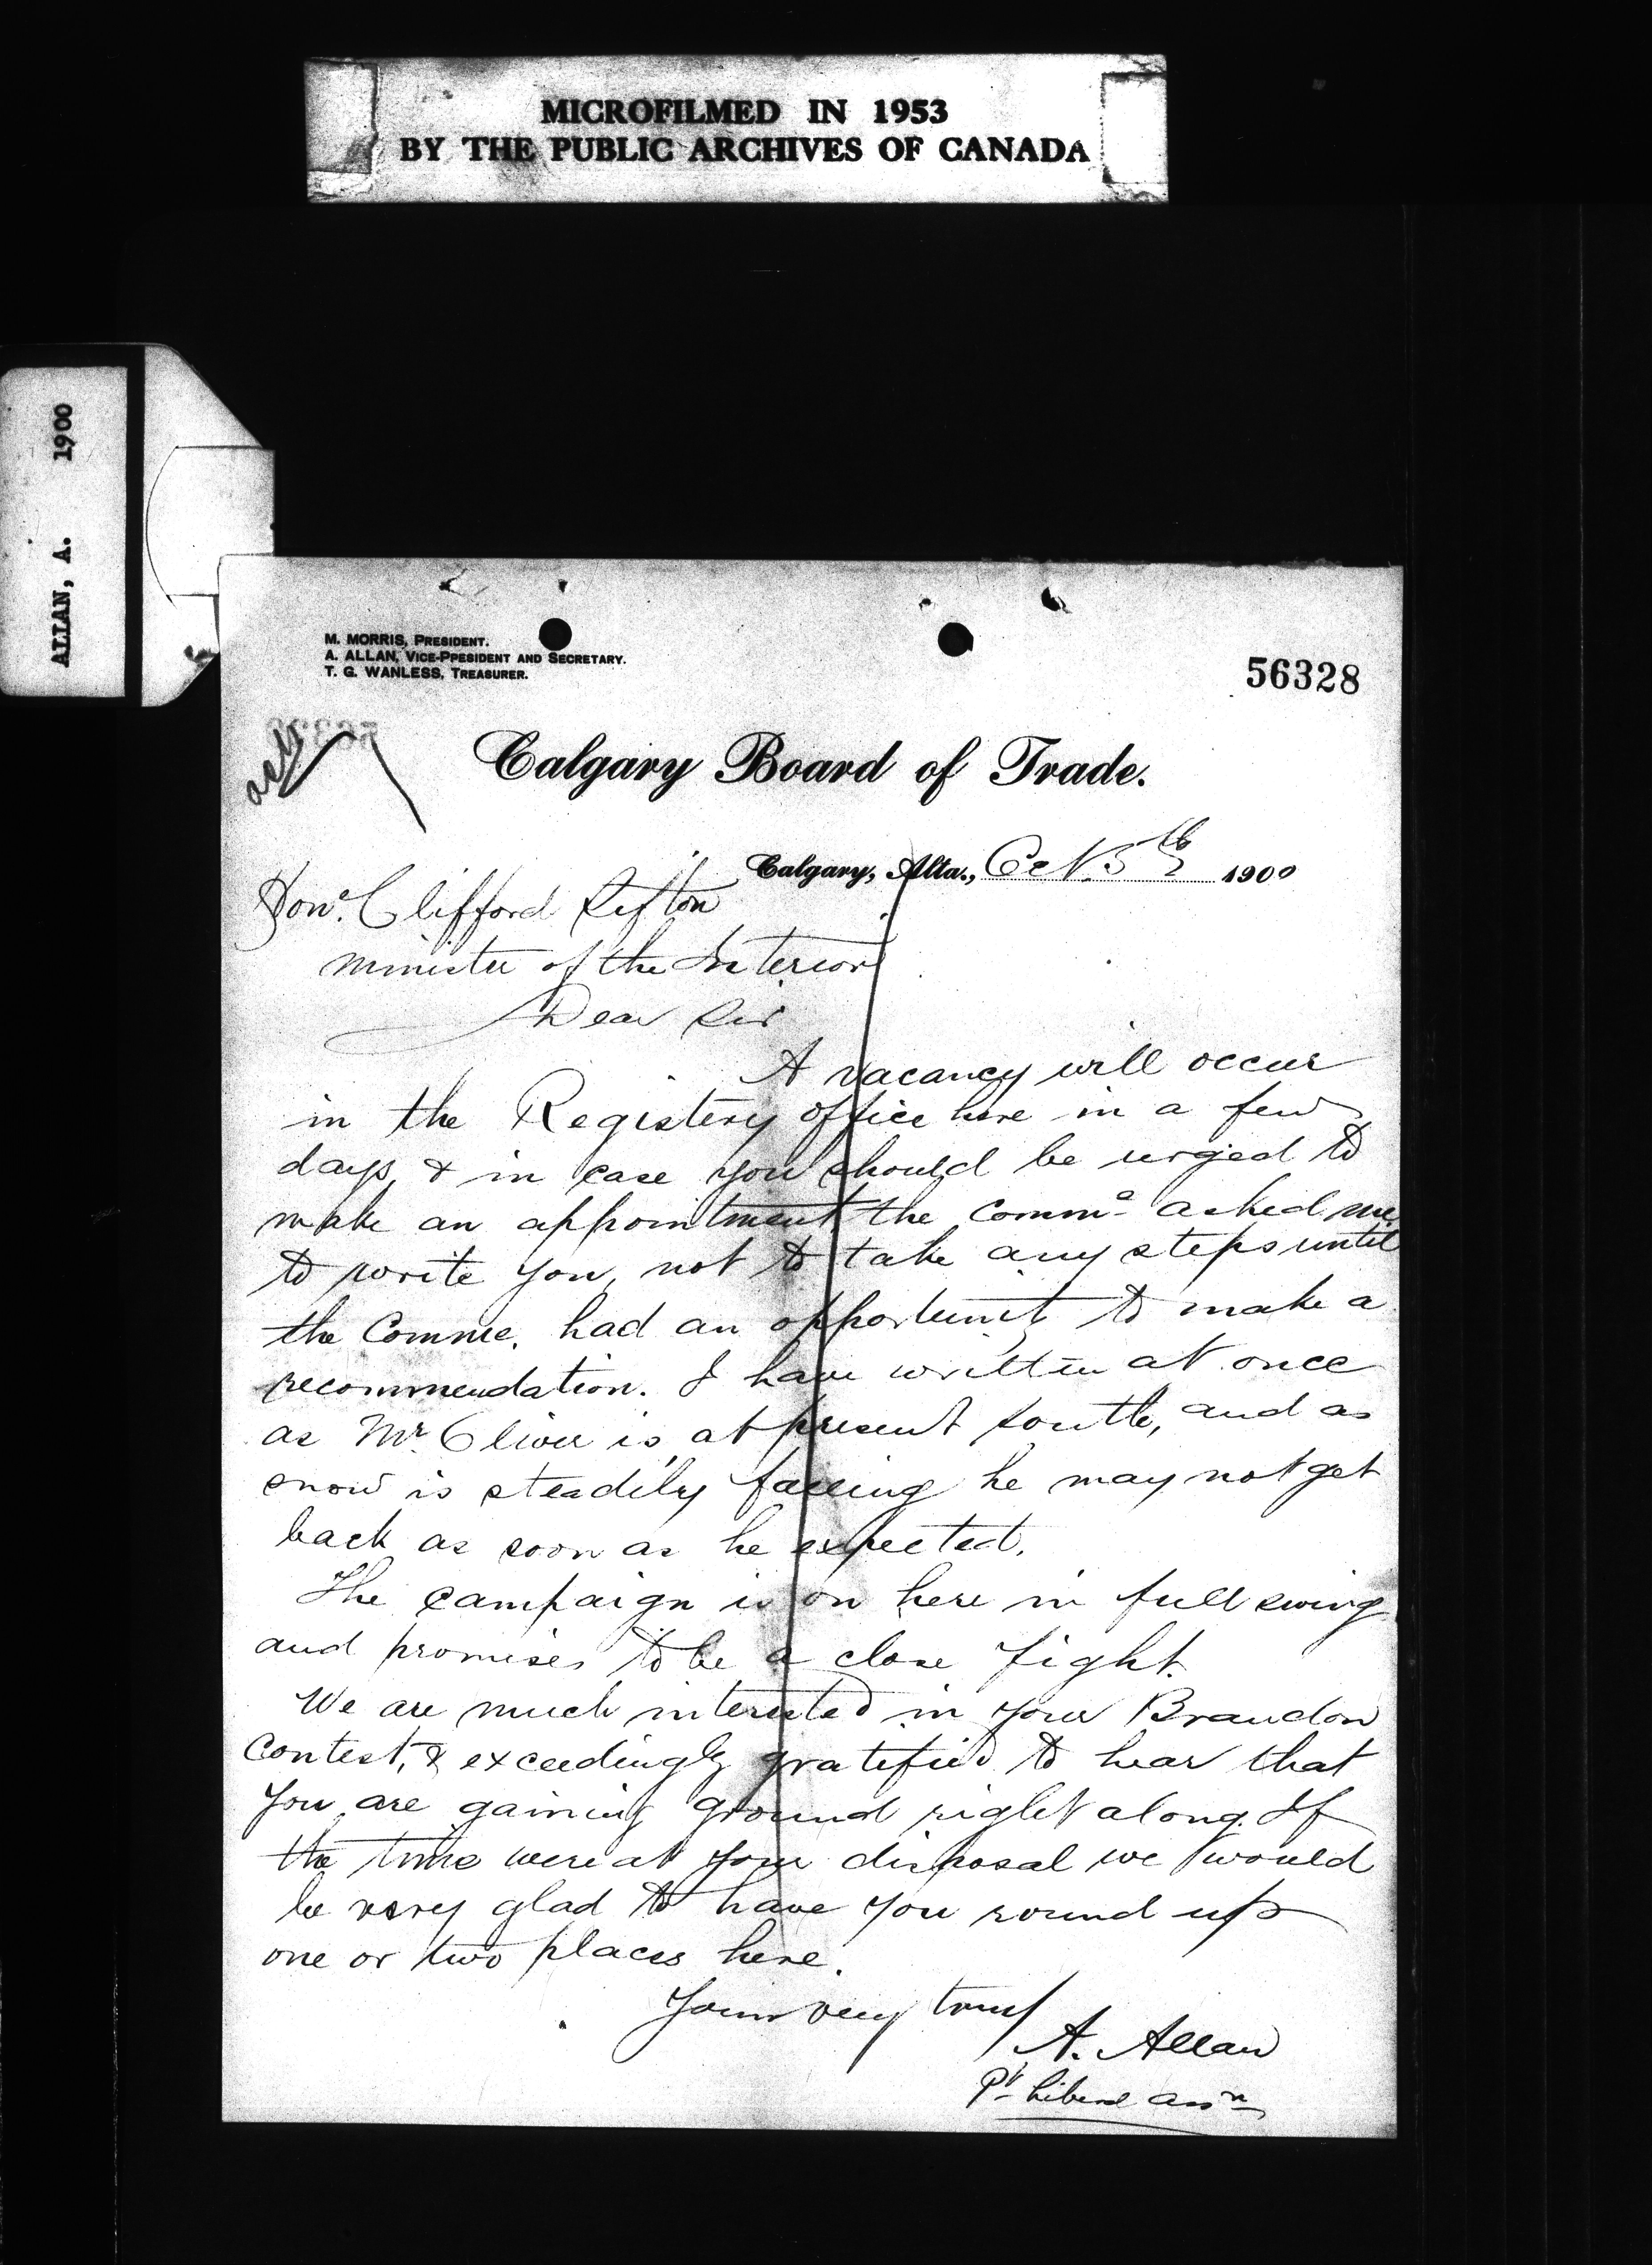 MICROFILMED IN 1953
BY THE PUBLIC ARCHIVES OF CANADA
ALLAN, A. 1900
M. MORRIS, PRESIDENT.
A. ALLAN, VICE-PPESIDENT AND SECRETARY.
T. G. WANLESS, TREASURER.
56328
Calgary Board of Trade.
Calgary, Alta., Oct. 5th 1900
Hone. Clifford Sifton
Minister of the Interior
Dear Sir
A vacancy will occur
in the Registery office here in a few
days, & in case you should be urged to
make an appointment the Comme asked me
to write you, not to take any steps until
the Comme. had an opportunity to make a
recommendation. I have written at once
as Mr. Oliver is at present South, and as
snow is steadily falling he may not get
back as soon as he expected.
The campaign is on here in full swing
and promises to be a close fight.
We are much interested in your Brandon
Contest, & exceedingly gratified to hear that
you are gaining ground right along. If
the time were at your disposal we would
be very glad to have you round up
one or two places here.
Yours very truly
A. Allan
Pt Liberal Assn